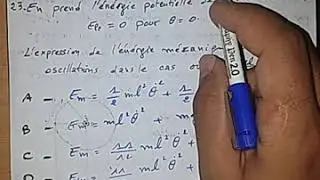 23. En prend l'énergie potentielle de
Epp = 0 pour θ = 0.
L'expression de l'énergie mécani
oscillations dans le cas où
A - Em = 1/2 ml² θ̇² + 1/2
B - Em = ml² θ̇² + m
C - Em = 11/12 ml² θ̇² +
D - Em = 11 ml² θ̇² +
2.0